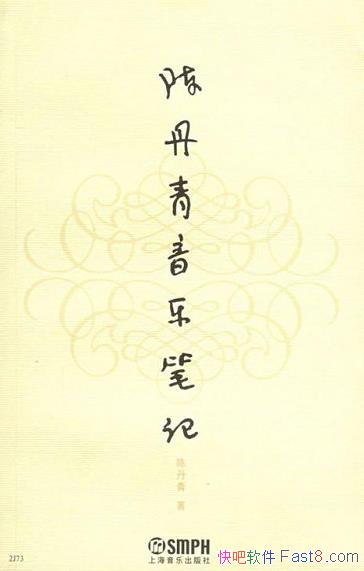 陈丹青音乐笔记
陈丹青 著
SMPH
上海音乐出版社
2J73
快吧软件 Fast8.com